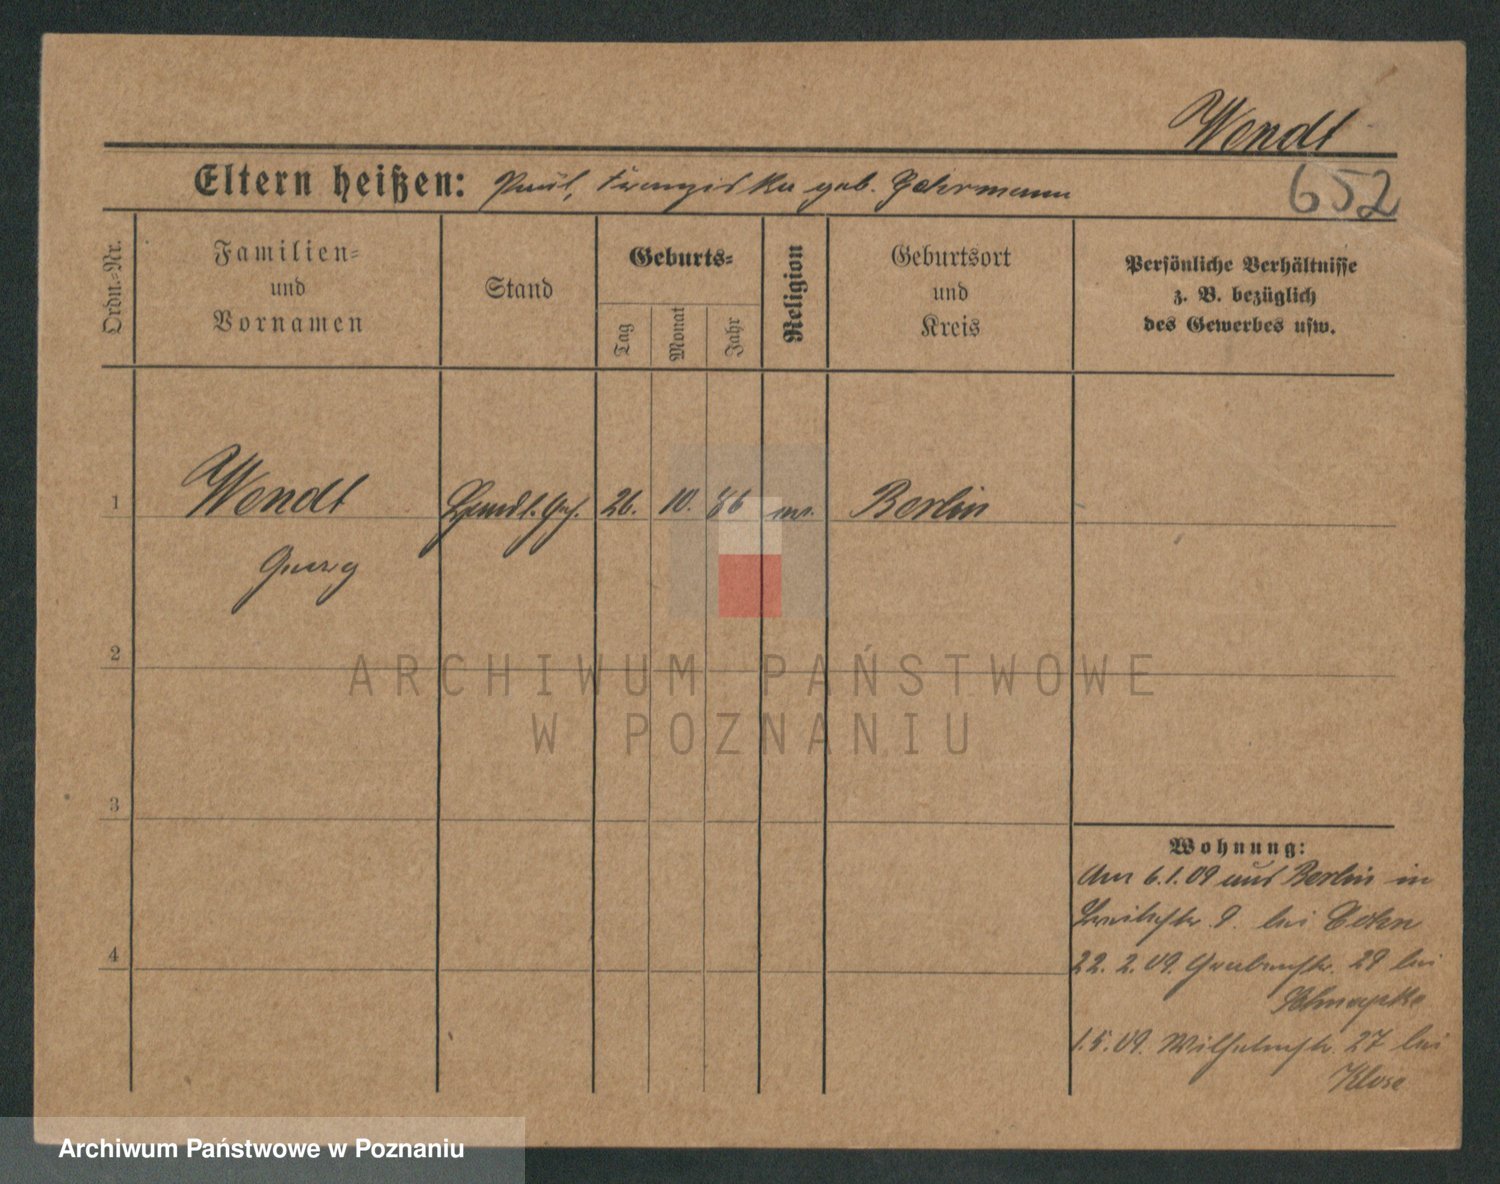 Wendt
Eltern heißen: Paul, Franziska geb. Gehrmann
652
Ordn.-Nr.
Familien-
und
Vornamen
Stand
Geburts-
Tag
Monat
Jahr
Religion
Geburtsort
und
Kreis
Persönliche Verhältnisse
z. B. bezüglich
des Gewerbes usw.
1
Wendt
Handl. Geh. 26. 10. 86 Berlin
Georg
2
ARCHIWUM PAŃSTWOWE
W POZNANIU
3
Wohnung:
Am 6.1.09 aus Berlin in
9. bei Cohn
4
22. 2. 09. Grabenstr. 29 bei
1.5.09. Wilhelmstr. 27 bei
Klose
Archiwum Państwowe w Poznaniu